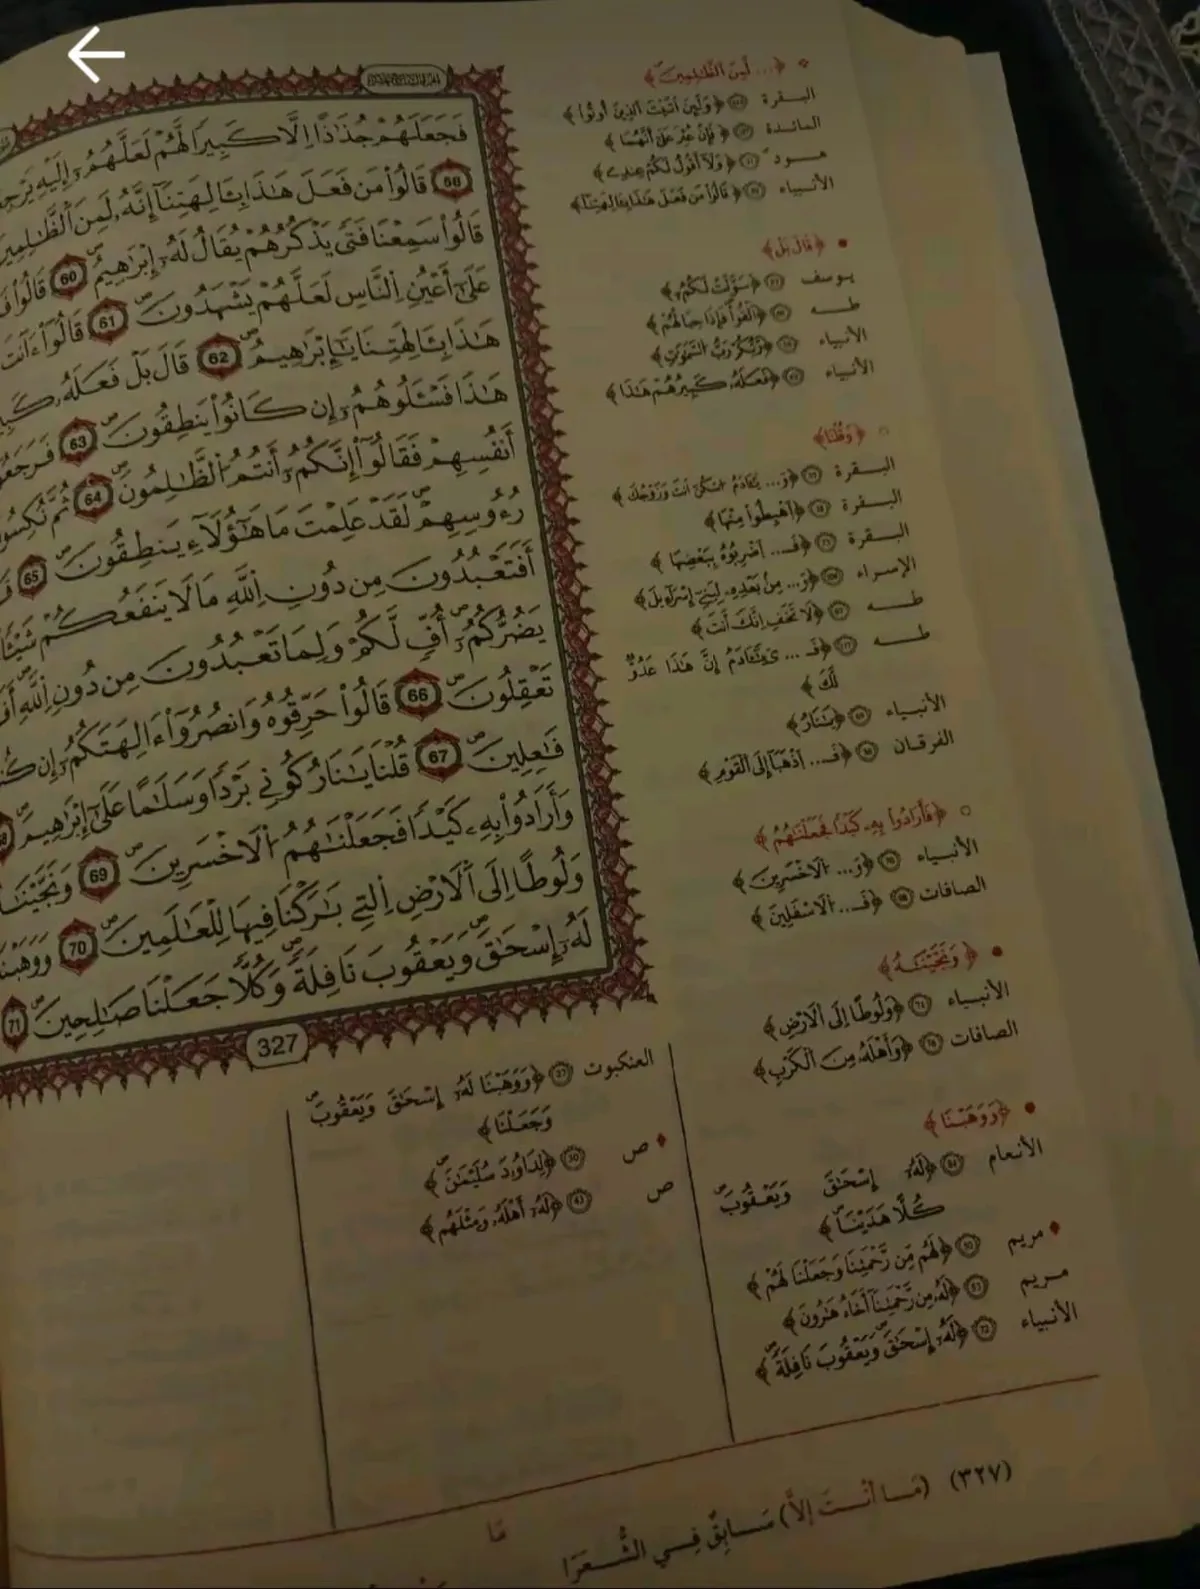 فَجَعَلَهُمْ جُذَٰذًا اِلَّا كَبِيرًا لَّهُمْ لَعَلَّهُمُۥٓ إِلَيْهِ
58 قَالُوا۟ مَن فَعَلَ هَٰذَا بِـَٔالِهَتِنَآ إِنَّهُۥ لَمِنَ اَ۬لظَّٰلِمِينَ
قَالُوا۟ سَمِعْنَا فَتًى يَذْكُرُهُمْ يُقَالُ لَهُۥٓ إِبْرَٰهِيمُ 60 قَالُوا۟
عَلَىٰٓ أَعْيُنِ اِ۬لنَّاسِ لَعَلَّهُمْ يَشْهَدُونَ 61 قَالُوٓا۟ ءَآنتَ
هَٰذَا بِـَٔالِهَتِنَا يَٰٓإِبْرَٰهِيمُ 62 قَالَ بَلْ فَعَلَهُۥ
هَٰذَا فَسْـَٔلُوهُمُۥٓ إِن كَانُوا۟ يَنطِقُونَ 63
أَنفُسِهِمْ فَقَالُوٓا۟ إِنَّكُمُۥٓ أَنتُمُ اُ۬لظَّٰلِمُونَ 64 ثُمَّ نُكِسُوا۟
رُءُوسِهِمْ لَقَدْ عَلِمْتَ مَا هَٰٓؤُلَآءِ يَنطِقُونَ 65
أَفَتَعْبُدُونَ مِن دُونِ اِ۬للَّهِ مَا لَا يَنفَعُكُمْ شَيْـًٔا
يَضُرُّكُمُۥٓ أُفٍّ لَّكُمْ وَلِمَا تَعْبُدُونَ مِن دُونِ اِ۬للَّهِ
تَعْقِلُونَ 66 قَالُوا۟ حَرِّقُوهُ وَانصُرُوٓا۟ ءَالِهَتَكُمُۥٓ إِن
فَٰعِلِينَ 67 قُلْنَا يَٰنَارُ كُونِي بَرْدًا وَسَلَٰمًا عَلَىٰٓ إِبْرَٰهِيمَ
وَأَرَادُوا۟ بِهِۦ كَيْدًا فَجَعَلْنَٰهُمُ اُ۬لَاخْسَرِينَ 69
وَلُوطًا اِلَى اَ۬لَارْضِ اِ۬لتِي بَٰرَكْنَا فِيهَا لِلْعَٰلَمِينَ 70
لَهُۥٓ إِسْحَٰقَ وَيَعْقُوبَ نَافِلَةً وَكُلًّا جَعَلْنَا صَٰلِحِينَ 71
327
﴿... لَمِنَ اَ۬لظَّٰلِمِينَ﴾
البقرة ﴿وَلَئِنَ اَتَيْتَ اَ۬لذِينَ أُوتُوا۟﴾
المائدة ﴿فَإِنْ عُثِرَ عَلَىٰٓ أَنَّهُمَا﴾
هود ﴿وَلَآ أَقُولُ لَكُمْ عِندِي﴾
الأنبياء ﴿قَالُوا۟ مَن فَعَلَ هَٰذَا بِـَٔالِهَتِنَآ﴾
﴿قَالَ بَلْ﴾
يوسف ﴿سَوَّلَتْ لَكُمُۥٓ﴾
طه ﴿اَلْقُوا۟ فَإِذَا حِبَالُهُمْ﴾
الأنبياء ﴿رَبُّكُمْ رَبُّ السَّمَٰوَٰتِ﴾
الأنبياء ﴿فَعَلَهُۥ كَبِيرُهُمْ هَٰذَا﴾
﴿وَقُلْنَا﴾
البقرة ﴿وَ... يَٰٓـَٔادَمُ اُ۟سْكُنَ اَنتَ وَزَوْجُكَ﴾
البقرة ﴿اُ۪هْبِطُوا۟ مِنْهَا﴾
البقرة ﴿فَـ... اَ۪ضْرِبُوهُ بِبَعْضِهَا﴾
الإسراء ﴿وَ... مِنۢ بَعْدِهِۦ لِبَنِيٓ إِسْرَآءِيلَ﴾
طه ﴿لَا تَخَفِ اِنَّكَ أَنتَ﴾
طه ﴿فَـ... يَٰٓـَٔادَمُ إِنَّ هَٰذَا عَدُوٌّ
لَّكَ﴾
الأنبياء ﴿يَٰنَارُ﴾
الفرقان ﴿فَـ... اَ۪ذْهَبَآ إِلَى اَ۬لْقَوْمِ﴾
﴿فَأَرَادُوا۟ بِهِۦ كَيْدًا فَجَعَلْنَٰهُمُ﴾
الأنبياء ﴿وَ... اُ۬لَاخْسَرِينَ﴾
الصافات ﴿فَـ... اُ۬لَاسْفَلِينَ﴾
﴿وَنَجَّيْنَٰهُ﴾
الأنبياء ﴿وَلُوطًا اِلَى اَ۬لَارْضِ﴾
الصافات ﴿وَأَهْلَهُۥ مِنَ اَ۬لْكَرْبِ﴾
﴿وَوَهَبْنَا﴾
الأنعام 84 ﴿لَهُۥٓ إِسْحَٰقَ وَيَعْقُوبَ
كُلًّا هَدَيْنَا﴾
مريم 50 ﴿لَهُم مِّن رَّحْمَتِنَا وَجَعَلْنَا لَهُمْ﴾
مريم ﴿لَهُۥ مِن رَّحْمَتِنَآ أَخَاهُ هَٰرُونَ﴾
الأنبياء 72 ﴿لَهُۥٓ إِسْحَٰقَ وَيَعْقُوبَ نَافِلَةً﴾
العنكبوت 27 ﴿وَوَهَبْنَا لَهُۥٓ إِسْحَٰقَ وَيَعْقُوبَ
وَجَعَلْنَا﴾
ص 30 ﴿لِدَاوُۥدَ سُلَيْمَٰنَ﴾
ص ﴿لَهُۥٓ أَهْلَهُۥ وَمِثْلَهُم﴾
(٣٢٧) (مَا أَنْتَ إِلَّا) سَابِقٌ فِي الشُّعَرَا
مَا